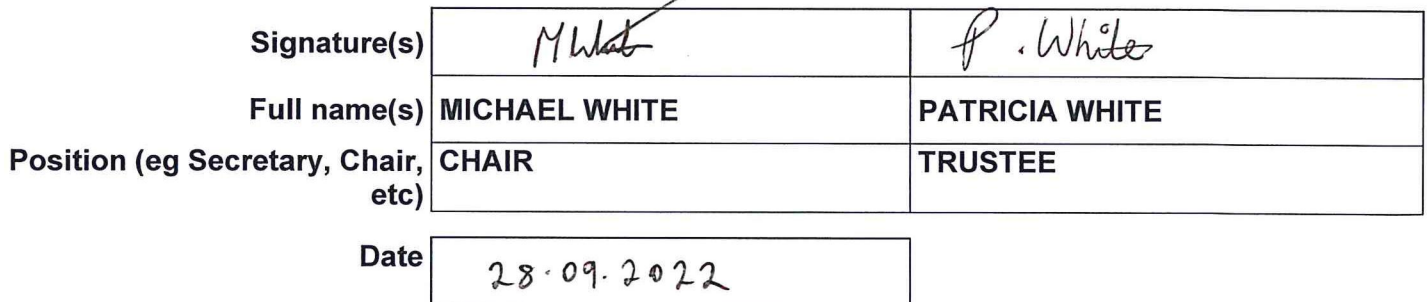 Signature(s) M White P. White
Full name(s) MICHAEL WHITE PATRICIA WHITE
Position (eg Secretary, Chair, CHAIR TRUSTEE
etc)
Date 28.09.2022